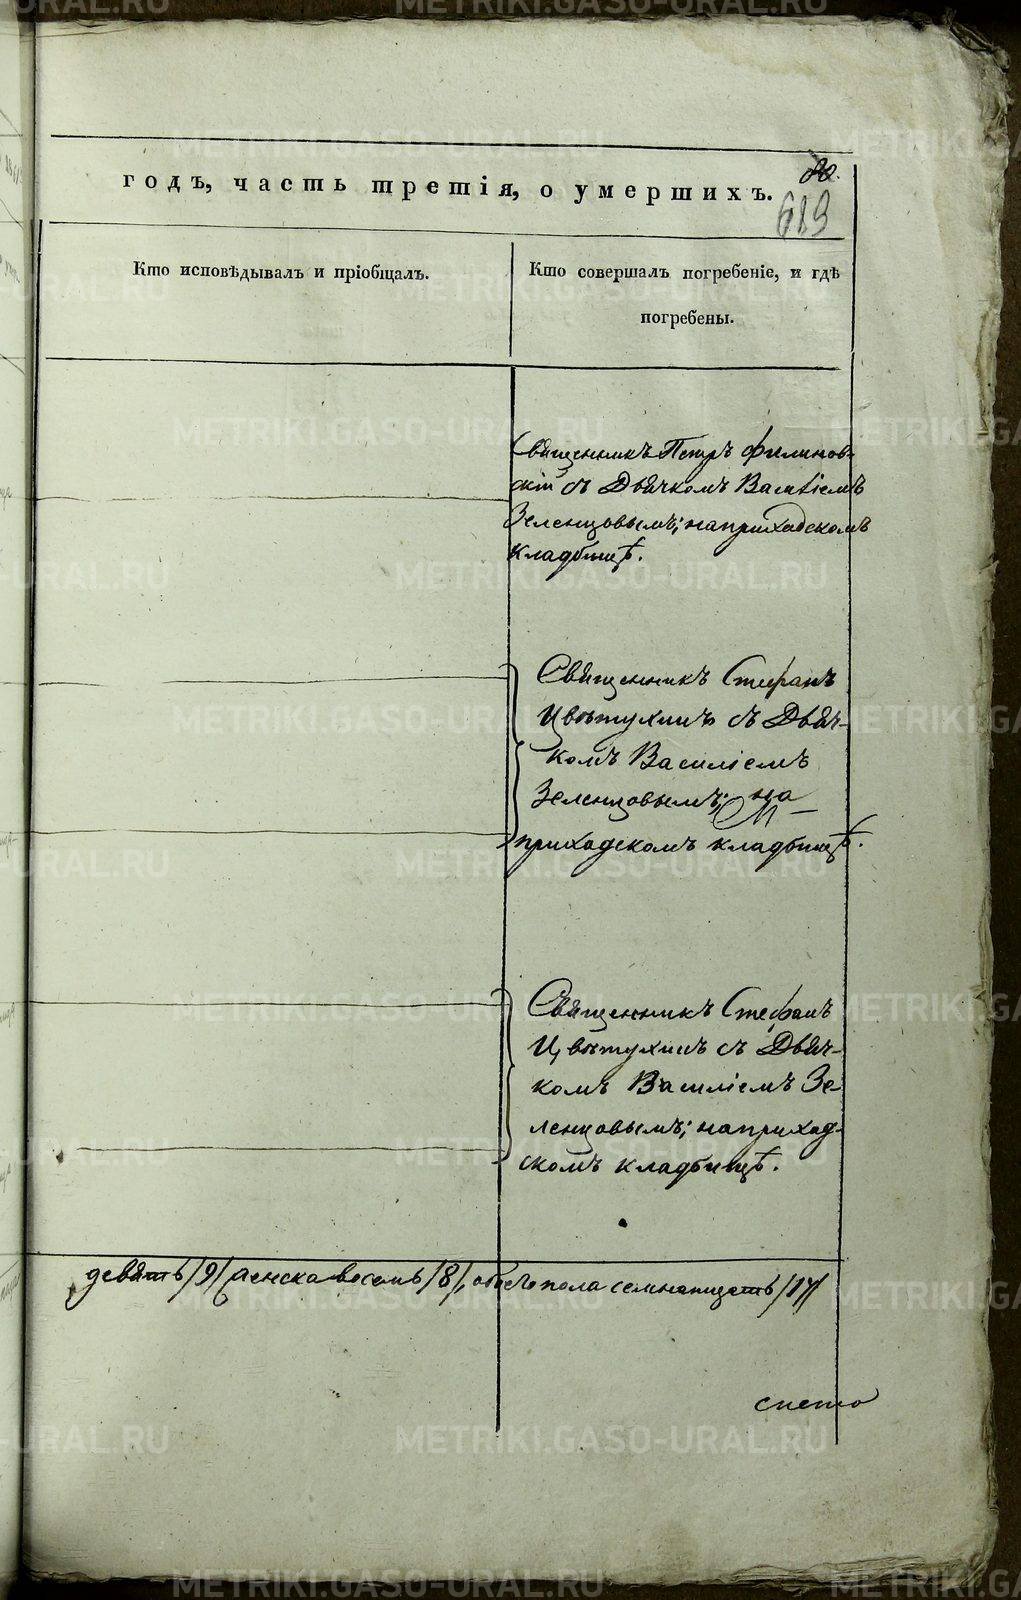 годъ, часть третія, о умершихъ.
619
Кто исповѣдывалъ и пріобщалъ.
Кто совершалъ погребеніе, и гдѣ
погребены.
Священникъ Петръ Филинов-
скій съ Дьячкомъ Василіемъ
Зеленцовымъ; на приходскомъ
кладбищѣ.
Священникъ Стефанъ
Цвѣтухинъ съ Дьяч-
комъ Василіемъ
Зеленцовымъ; на
приходскомъ кладбищѣ.
Священникъ Стефанъ
Цвѣтухинъ съ Дьяч-
комъ Василіемъ Зе-
ленцовымъ; на приход-
скомъ кладбищѣ.
девять /9/ женска восемь /8/, обоего пола семнатцать /17/
METRIKI.GASO-URAL.RU